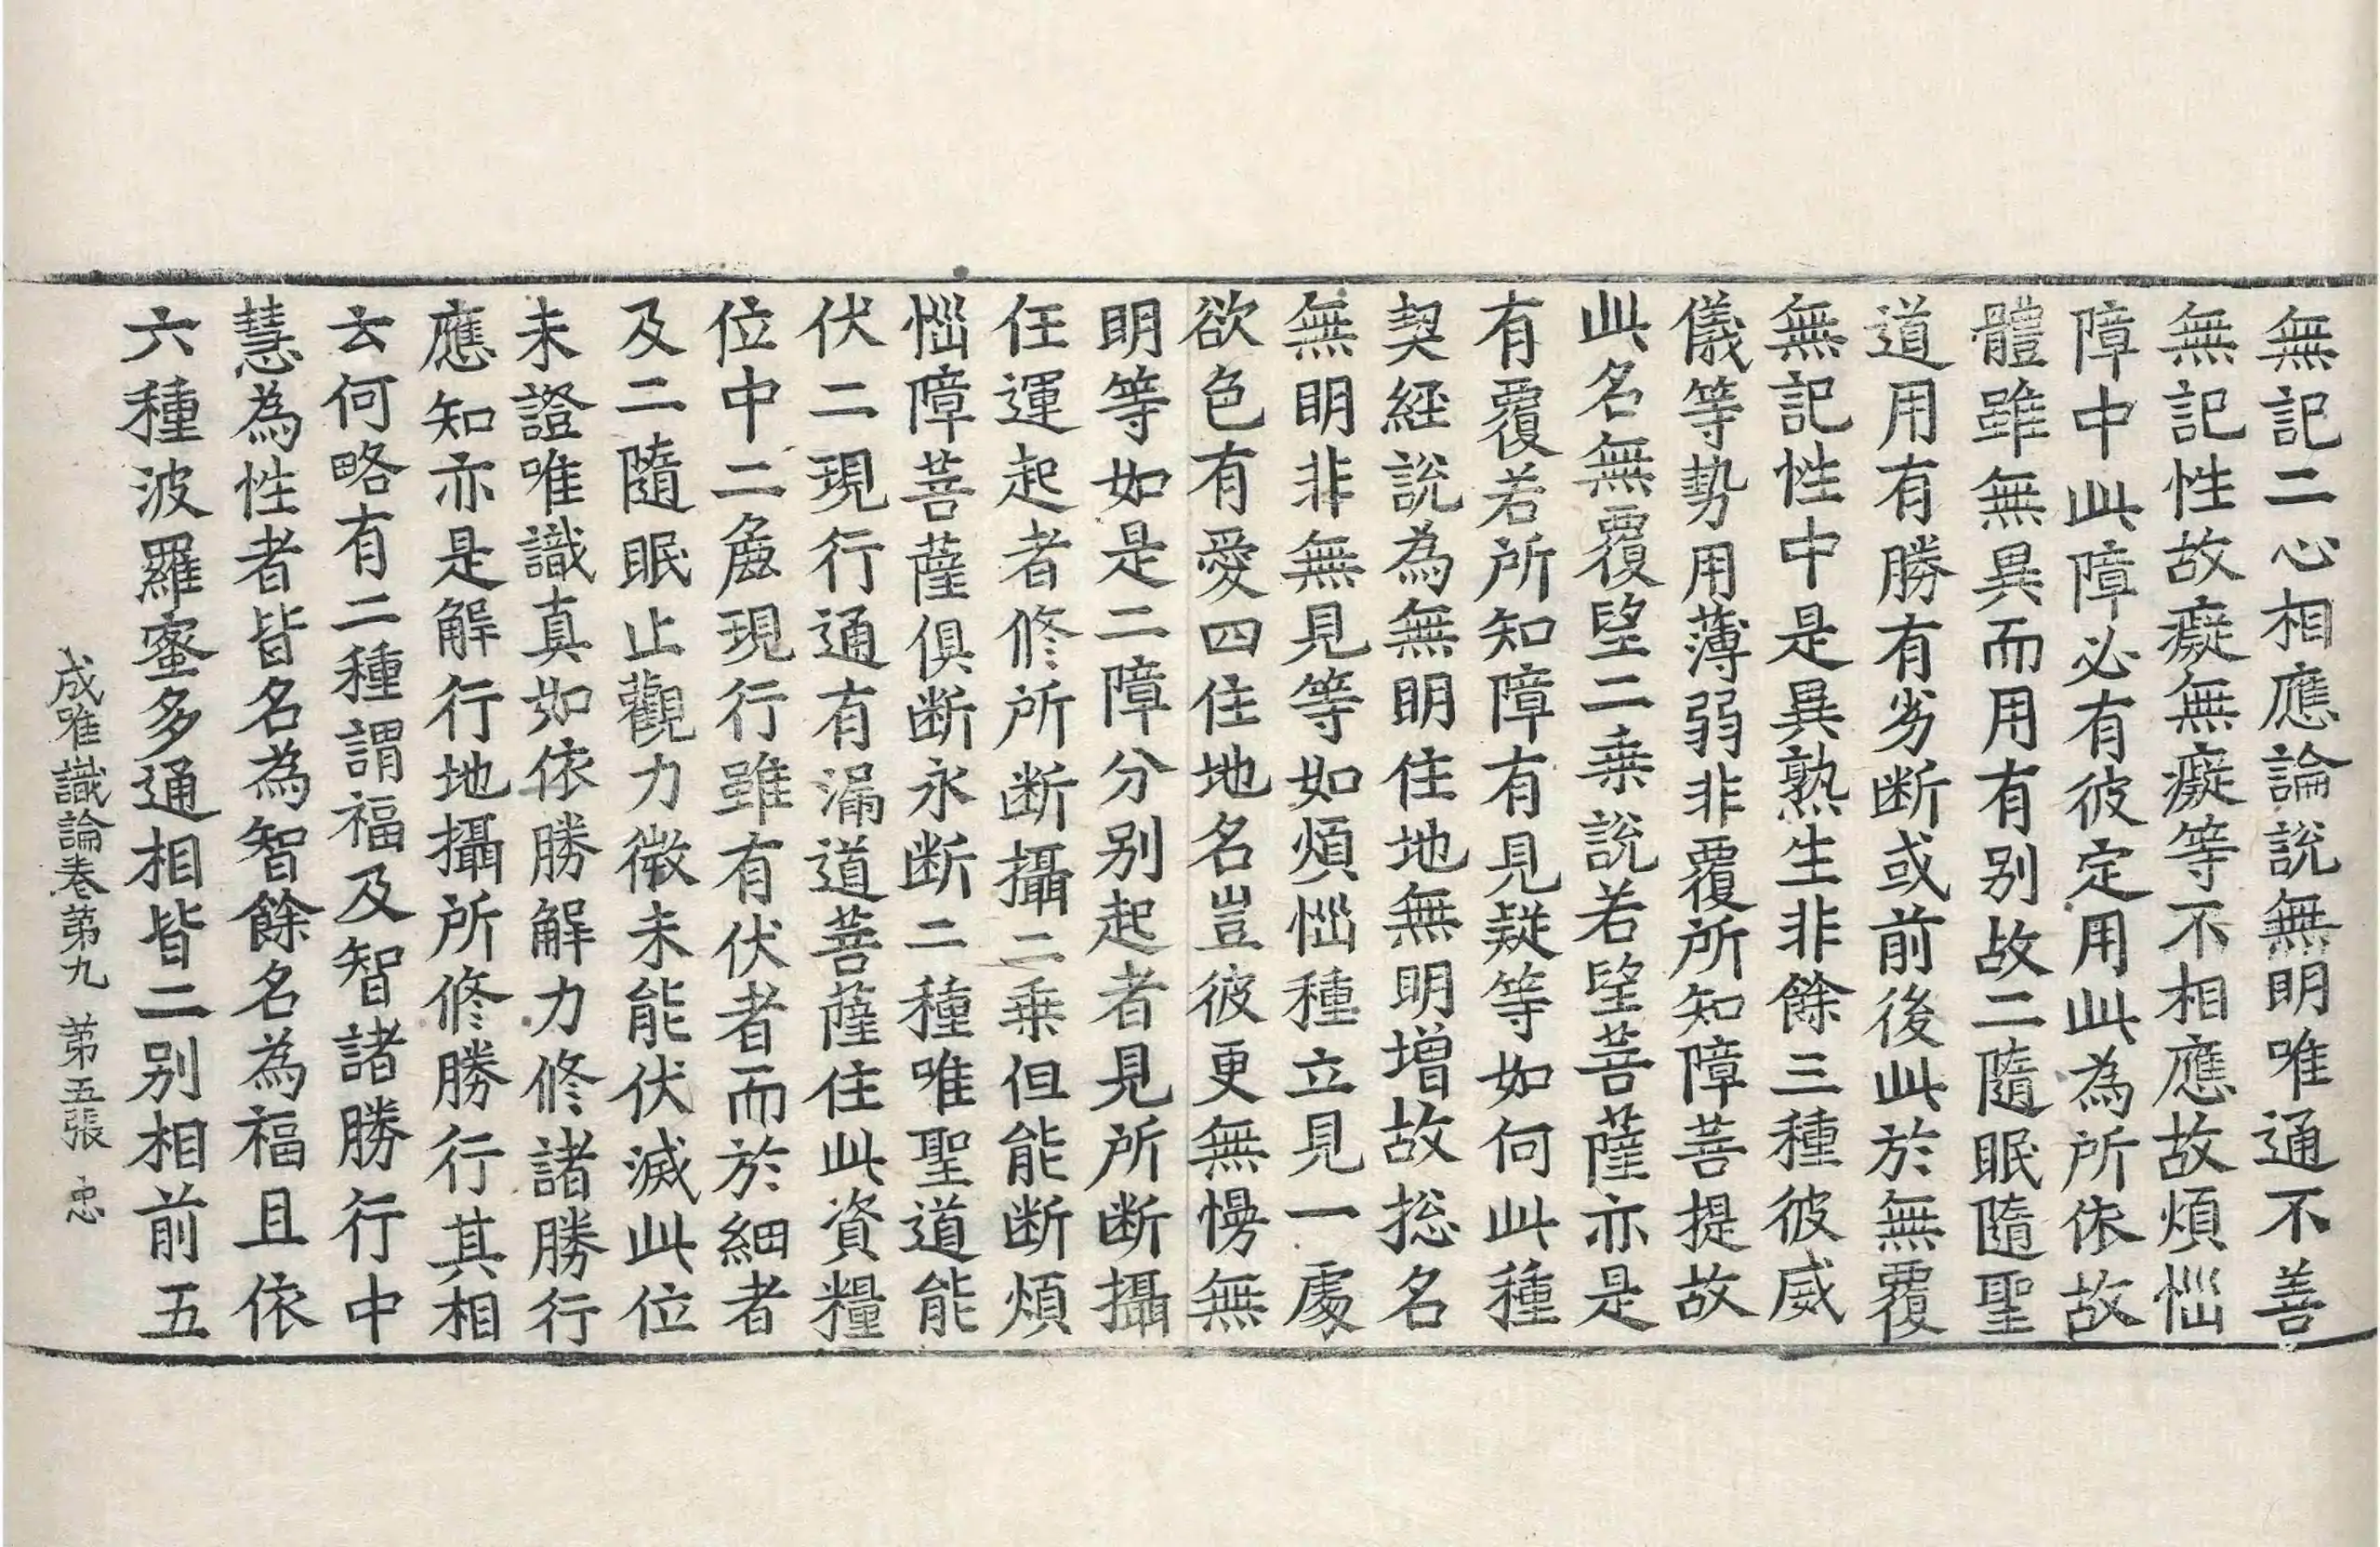 無記二心相應論說無明唯通不善
無記性故癡無癡等不相應故煩惱
障中此障必有彼定用此為所依故
體雖無異而用有別故二隨眠隨聖
道用有勝有劣断或前後此於無覆
無記性中是異熟生非餘三種彼威
儀等勢用薄弱非覆所知障菩提故
此名無覆望二乗說若望菩薩亦是
有覆若所知障有見疑等如何此種
契経說為無明住地無明增故捴名
無明非無見等如煩惱種立見一處
欲色有愛四住地名豈彼更無慢無
明等如是二障分別起者見所断攝
任運起者修所断攝二乗但能断煩
惱障菩薩俱断永断二種唯聖道能
伏二現行通有漏道菩薩住此資糧
位中二麁現行雖有伏者而於細者
及二隨眠止觀力微未能伏滅此位
未證唯識真如依勝解力修諸勝行
應知亦是解行地攝所修勝行其相
云何略有二種謂福及智諸勝行中
慧為性者皆名為智餘名為福且依
六種波羅蜜多通相皆二別相前五
成唯識論卷第九　第五張　忠